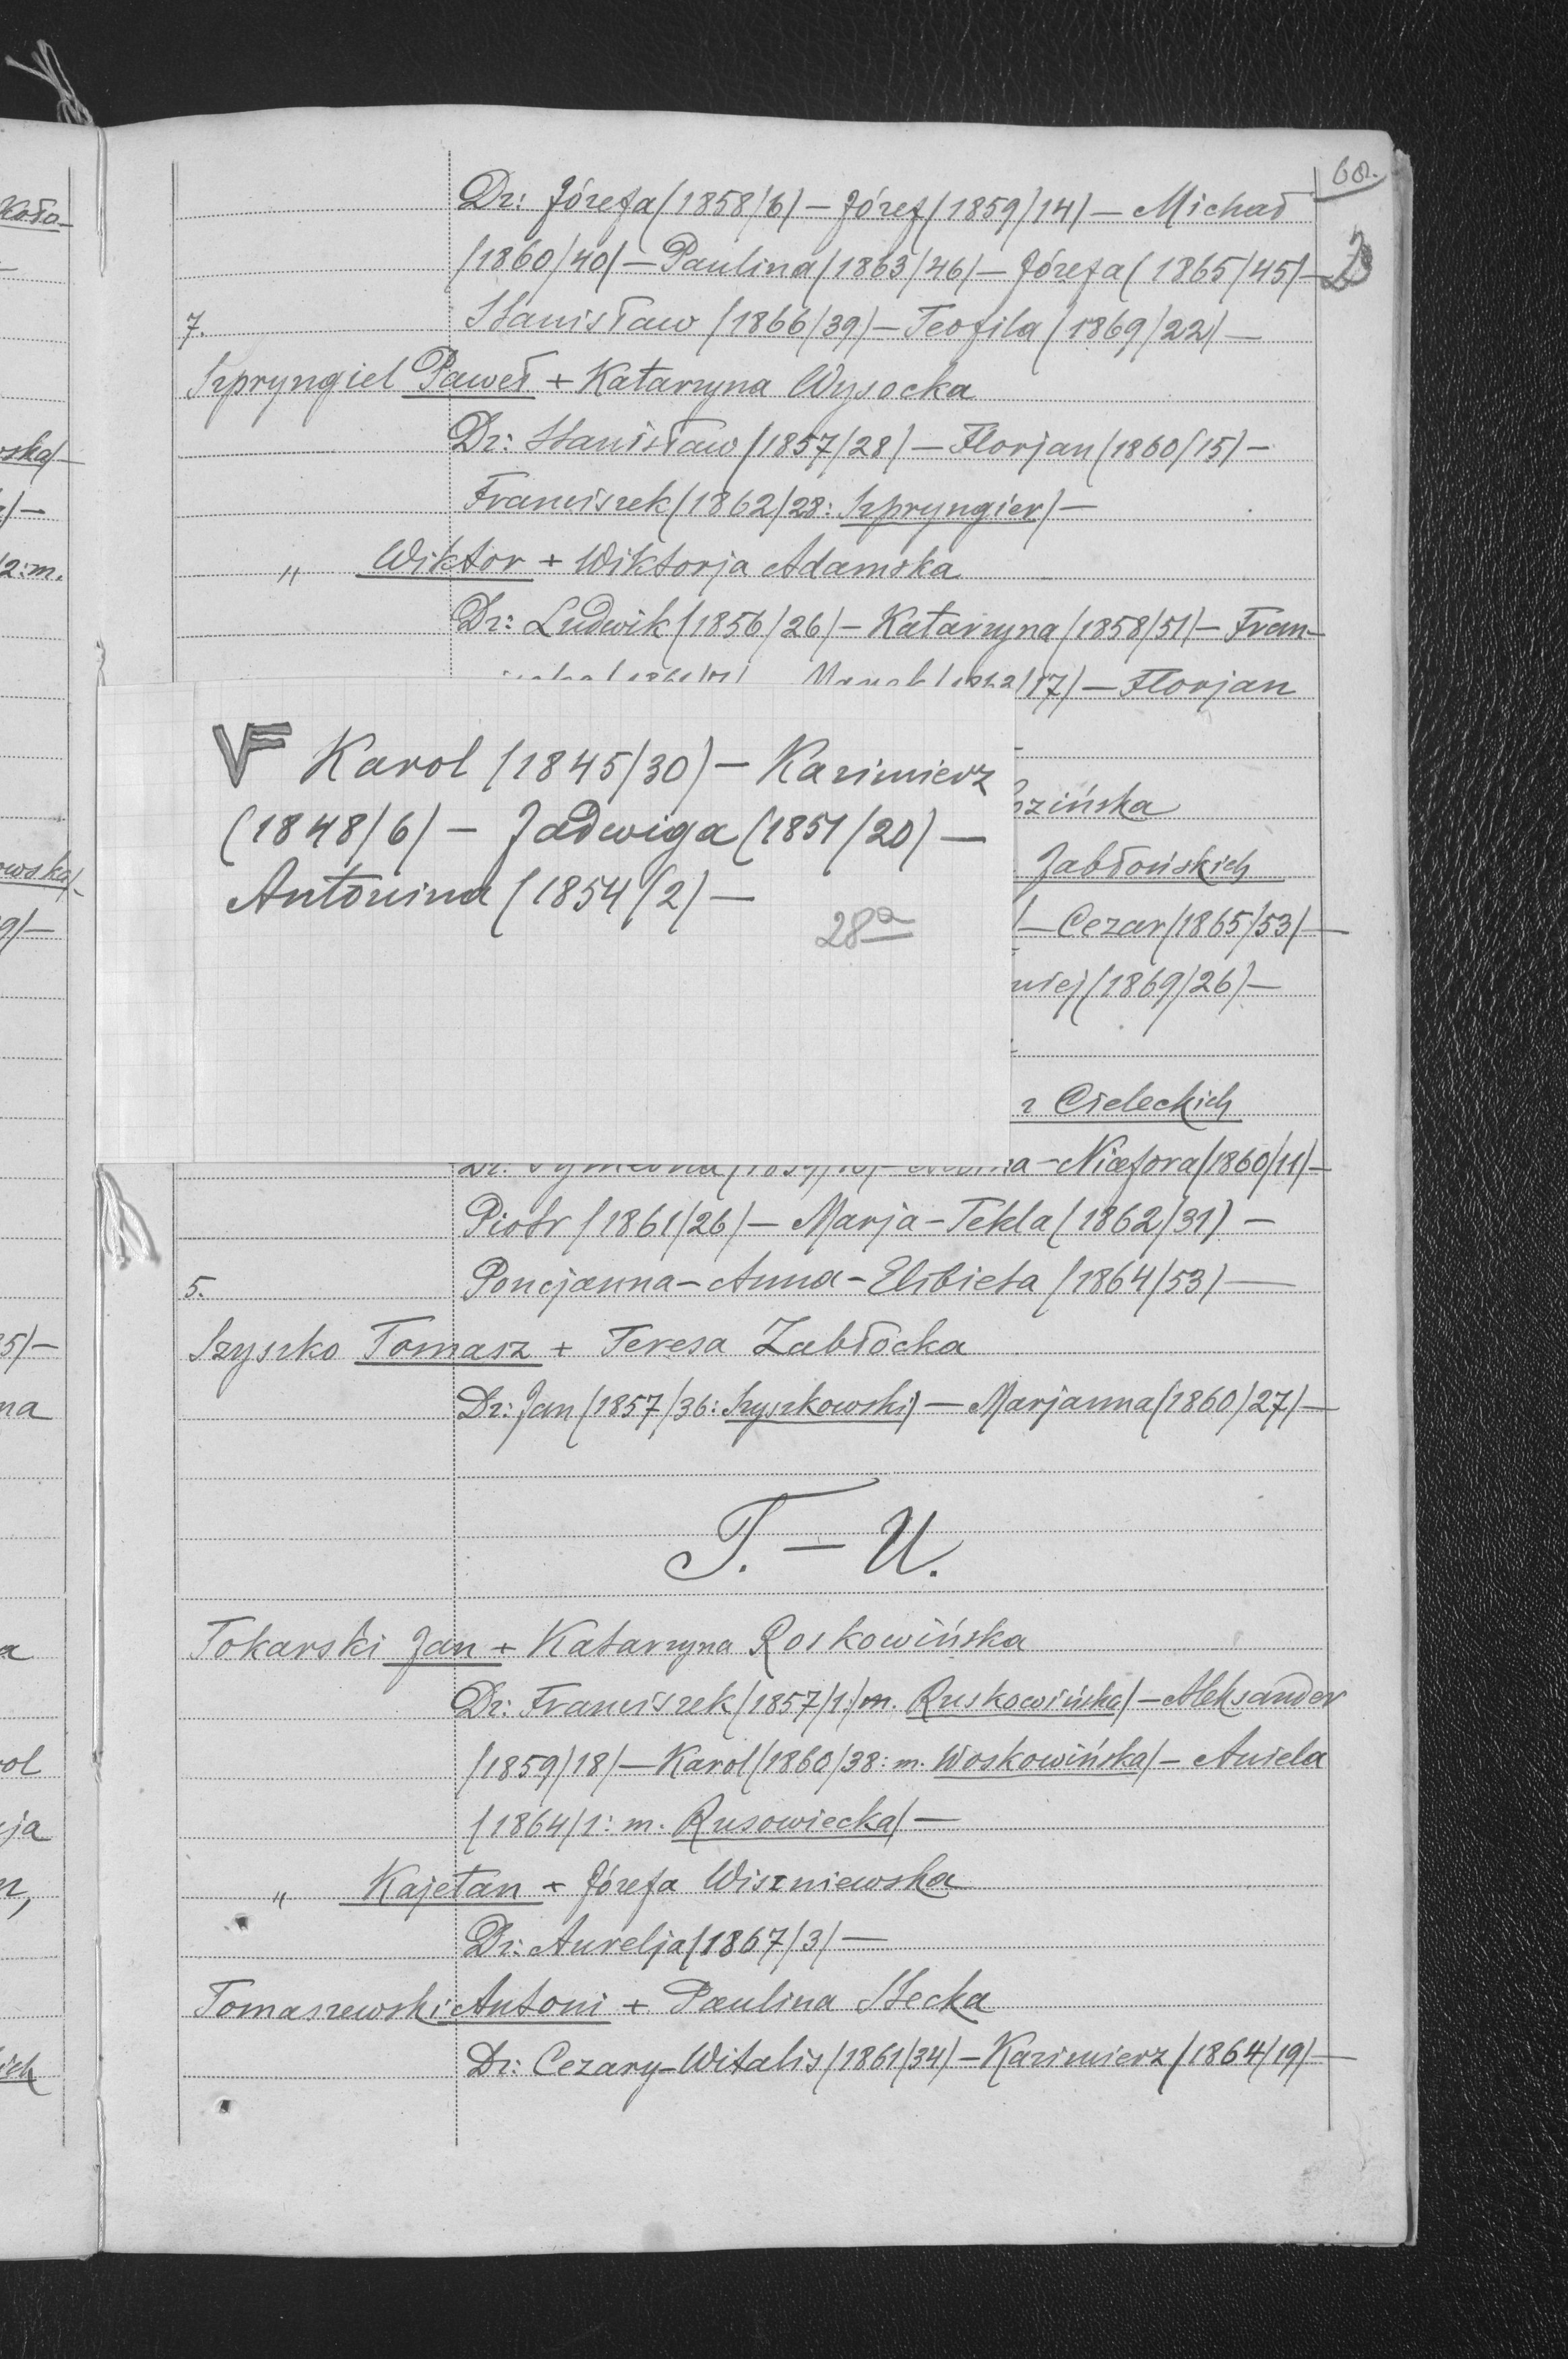 60.
Dz: Józefa (1858/6) — Józef (1859/14) — Michał
(1860/40) — Paulina (1863/46) — Józefa (1865/45) —
7. Stanisław (1866/39) — Teofila (1869/22) —
Szpryngiel Paweł + Katarzyna Wysocka
Dz: Stanisław (1857/28) — Florjan (1860/15) —
Franciszek (1862/28: Szpryngier) —
" Wiktor + Wiktorja Adamska
Dz: Ludwik (1856/26) — Katarzyna (1858/51) — Fran-
/17) — Florjan
Karol (1845/30) — Kazimierz
(1848/6) — Jadwiga (1851/20) —
Antonina (1854/2) —
28a
zińska
Jabłońskich
— Cezar (1865/53) —
(1869/26) —
z Cieleckich
Niefora (1860/11) —
Piotr (1861/26) — Marja-Tekla (1862/31) —
5. Poncjanna-Anna-Elżbieta (1864/53) —
Szyszko Tomasz + Teresa Zabłocka
Dz: Jan (1857/36: Szyszkowski) — Marjanna (1860/27) —
T. — U.
Tokarski Jan + Katarzyna Roskowińska
Dz: Franciszek (1857/1: m. Ruskowińska) — Aleksander
(1859/18) — Karol (1860/38: m. Woskowińska) — Aniela
(1864/1: m. Rusowiecka) —
" Kajetan + Józefa Wiszniewska
Dz: Aurelja (1867/3) —
Tomaszewski Antoni + Paulina Stecka
Dz: Cezary-Witalis (1861/34) — Kazimierz (1864/19) —